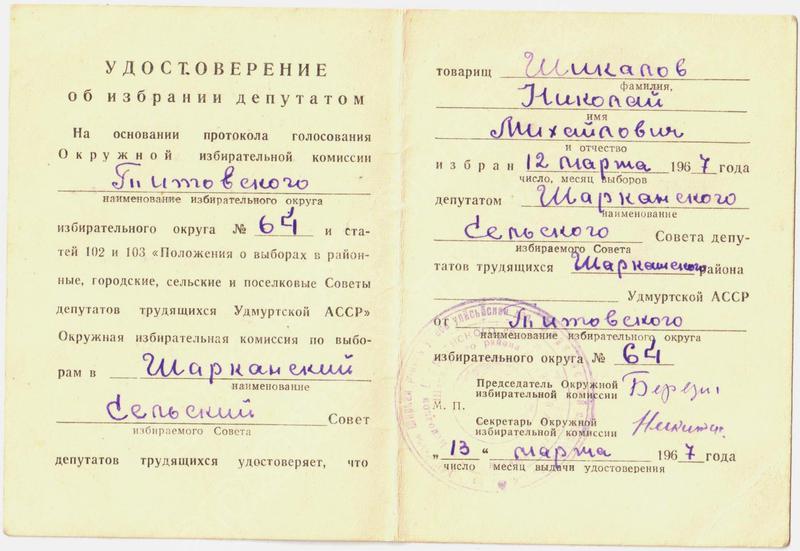 УДОСТОВЕРЕНИЕ
об избрании депутатом
На основании протокола голосования
Окружной избирательной комиссии
Титовского
наименование избирательного округа
избирательного округа № 64 и ста-
тей 102 и 103 «Положения о выборах в район-
ные, городские, сельские и поселковые Советы
депутатов трудящихся Удмуртской АССР»
Окружная избирательная комиссия по выбо-
рам в Шарканский
наименование
Сельский Совет
избираемого Совета
депутатов трудящихся удостоверяет, что
товарищ Шикалов
фамилия,
Николай
имя
Михайлович
и отчество
избран 12 марта 1967 года
число, месяц выборов
депутатом Шарканского
наименование
Сельского Совета депу-
избираемого Совета
татов трудящихся Шарканского района
Удмуртской АССР
от Титовского
наименование избирательного округа
избирательного округа № 64
Председатель Окружной
избирательной комиссии
М. П.
Секретарь Окружной
избирательной комиссии
„13" марта 1967 года
число месяц выдачи удостоверения